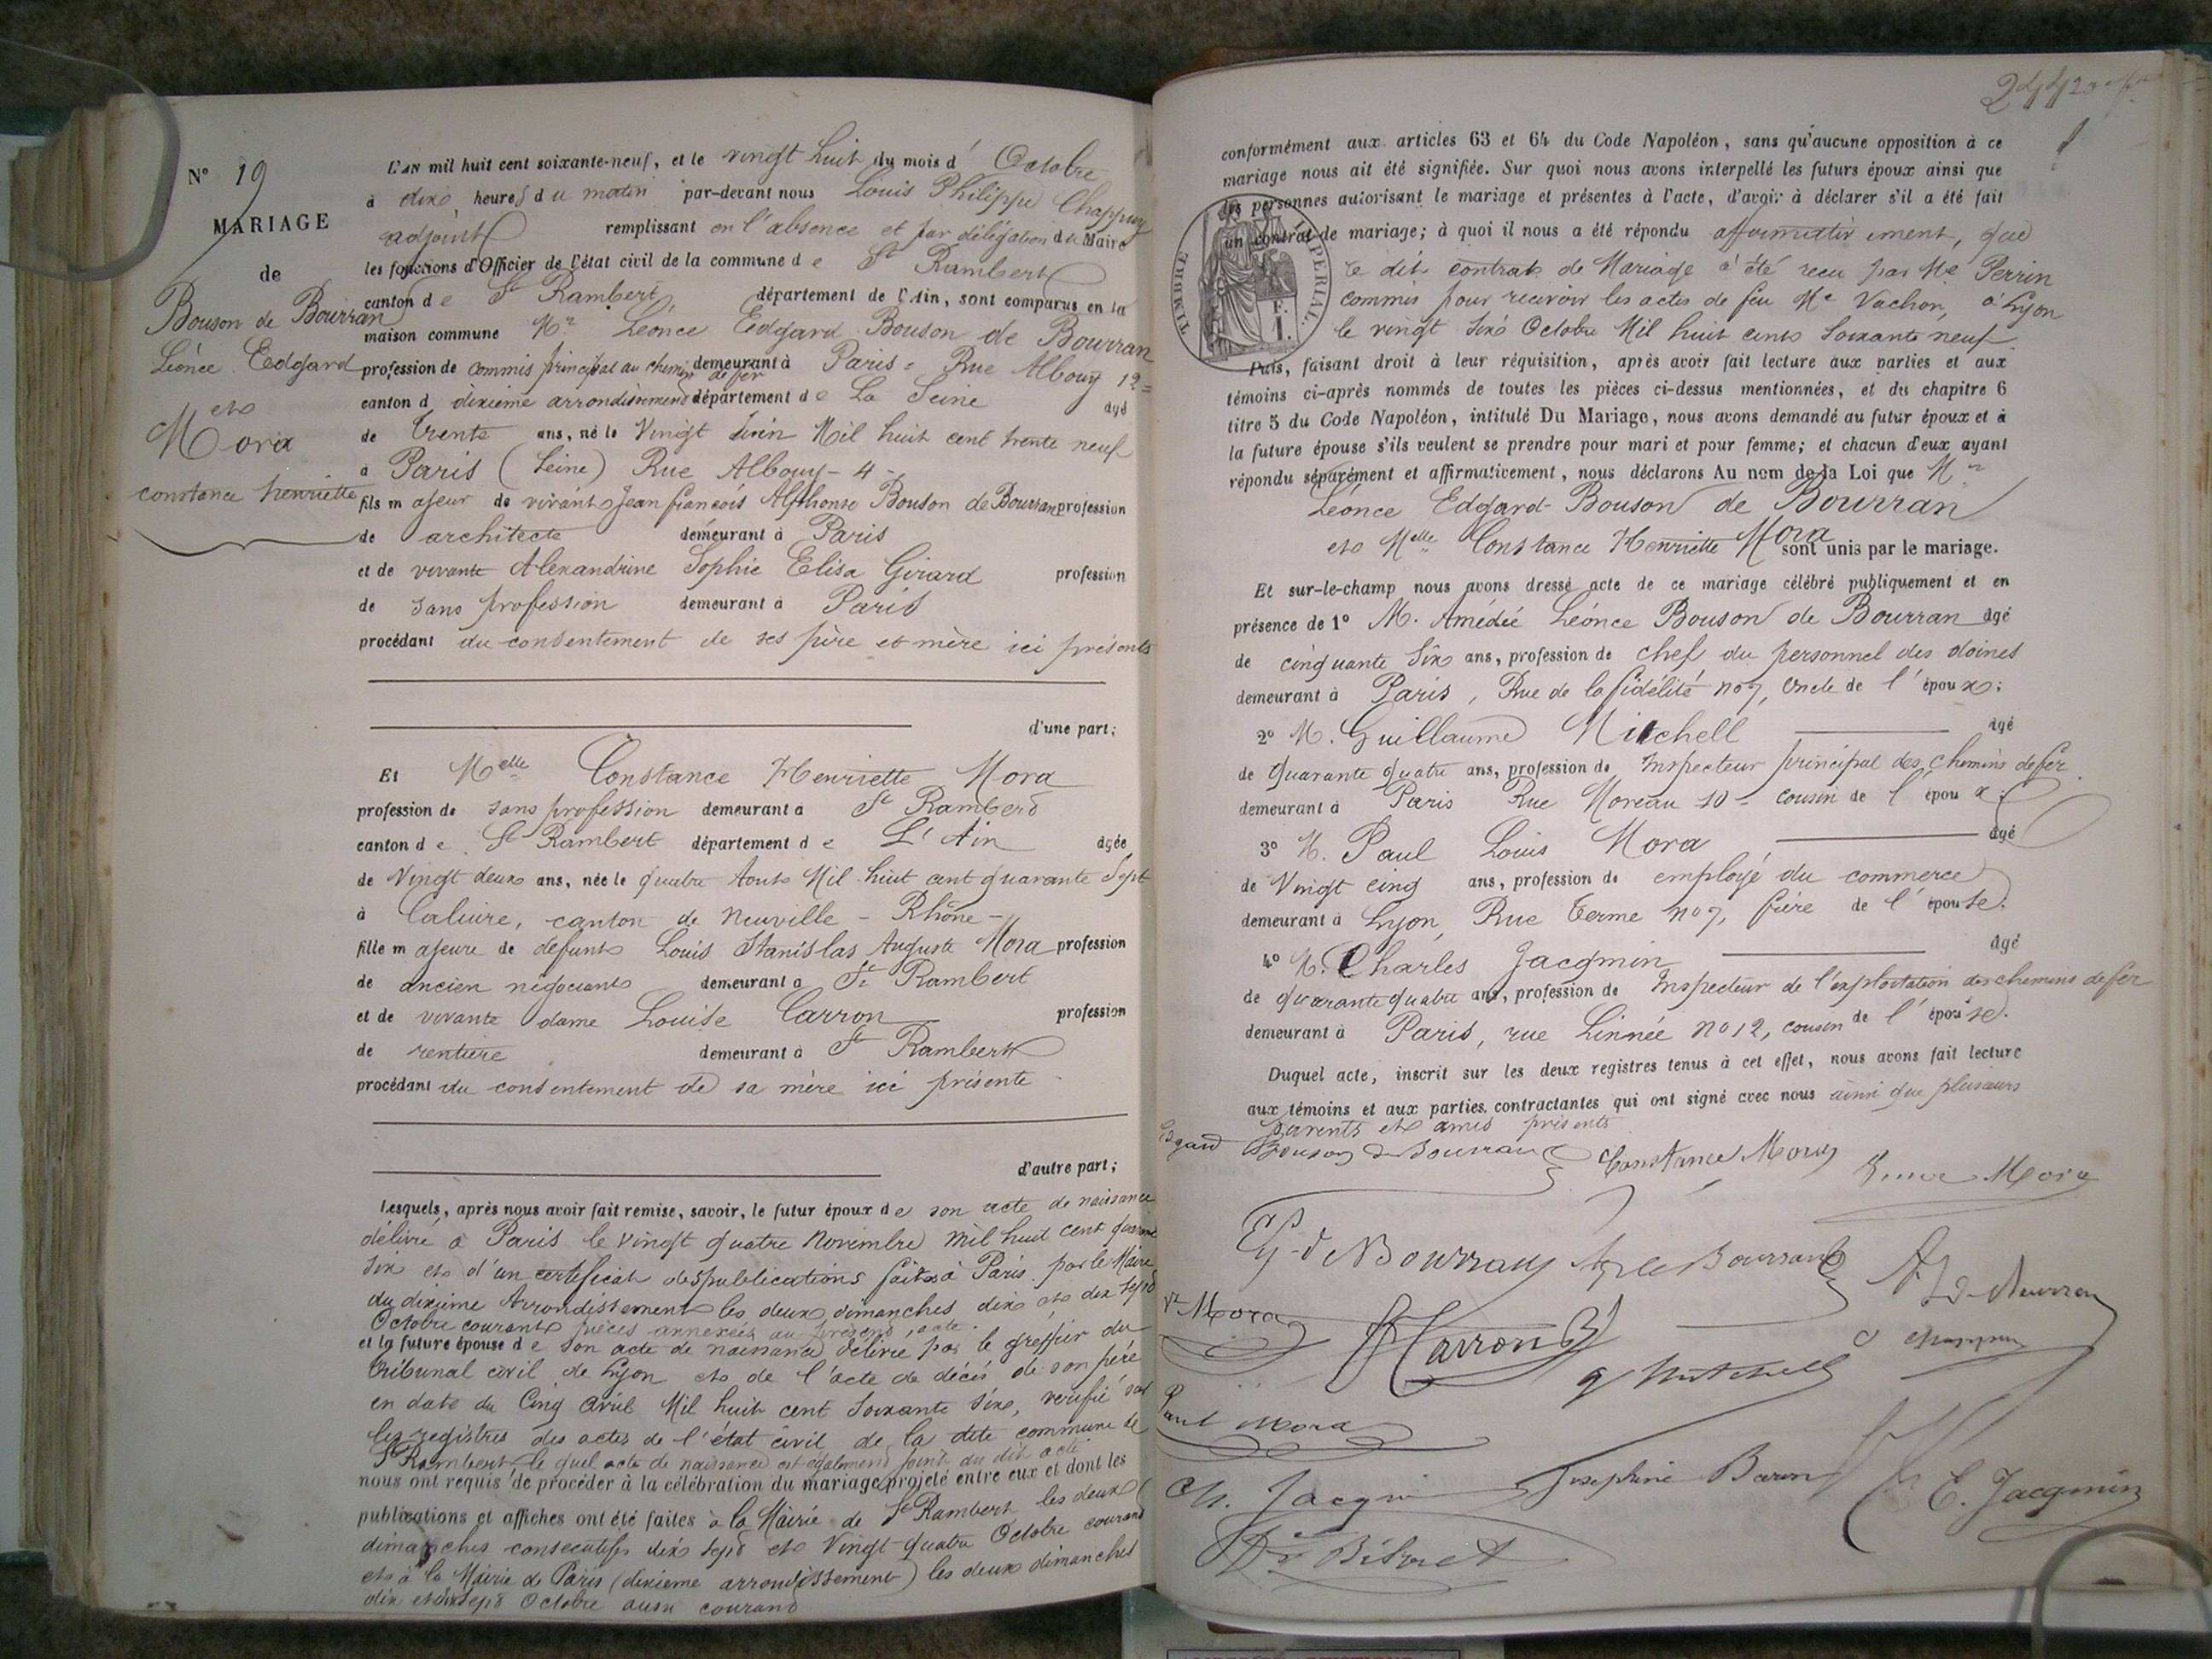 N° 19
MARIAGE
de
Bouson de Bourran
Léonce Edgard
et
Mora
constance henriette
L'AN mil huit cent soixante-neuf, et le vingt huit du mois d' Octobre
à dix heures du matin par-devant nous Louis Philippe Chappuy
adjoint remplissant en l'absence et par délégation du Maire
les fonctions d'Officier de l'état civil de la commune de St Rambert
canton de St Rambert, département de l'Ain, sont comparus en la
maison commune Mr Léonce Edgard Bouson de Bourran
profession de commis principal au chemin de fer demeurant à Paris - Rue Albouy 12 =
canton d dixième arrondissement département de La Seine âgé
de Trente ans, né le Vingt Juin Mil huit cent trente neuf
à Paris (Seine) Rue Albouy - 4 -
fils majeur de vivant Jean françois Alphonse Bouson de Bourran profession
de architecte demeurant à Paris
et de vivante Alexandrine Sophie Elisa Girard profession
de sans profession demeurant à Paris
procédant du consentement de ses père et mère ici présents
d'une part;
Et Melle Constance Henriette Mora
profession de sans profession demeurant à St Rambert
canton de St Rambert département de L'Ain âgée
de Vingt deux ans, née le quatre Aout Mil huit cent quarante Sept
à Caluire, canton de Neuville - Rhône -
fille majeure de défunt Louis Stanislas Auguste Mora profession
de ancien négociant demeurant à St Rambert
et de vivante dame Louise Carron profession
de rentière demeurant à St Rambert
procédant du consentement de sa mère ici présente
d'autre part;
Lesquels, après nous avoir fait remise, savoir, le futur époux de son acte de naissance
délivré à Paris le vingt quatre Novembre mil huit cent quarante
six et d'un certificat des publications faites à Paris par le Maire
du dixième Arrondissement les deux dimanches dix et dix sept
Octobre courant pièces annexées au présent acte.
et la future épouse de son acte de naissance délivré par le greffier du
tribunal civil de Lyon et de l'acte de décès de son père
en date du Cinq avril Mil huit cent soixante six, vérifié sur
les registres des actes de l'état civil de la dite commune de
St Rambert, le quel acte de naissance est également joint au dit acte
nous ont requis de procéder à la célébration du mariage projeté entre eux et dont les
publications et affiches ont été faites à la Mairie de St Rambert les deux
dimanches consecutifs dix sept et Vingt-quatre Octobre courant
et à la Mairie de Paris (dixieme arrondissement) les deux dimanches
dix et dix sept Octobre aussi courant
244
conformément aux articles 63 et 64 du Code Napoléon, sans qu'aucune opposition à ce
mariage nous ait été signifiée. Sur quoi nous avons interpellé les futurs époux ainsi que
les personnes autorisant le mariage et présentes à l'acte, d'avoir à déclarer s'il a été fait
un contrat de mariage; à quoi il nous a été répondu affirmativement, que
le dit contrat de Mariage a été reçu par Me Perrin
commis pour recevoir les actes de feu Me Vachon, à Lyon
le vingt six Octobre Mil huit cent soixante neuf.
TIMBRE IMPÉRIAL.
F.
1.
Puis, faisant droit à leur réquisition, après avoir fait lecture aux parties et aux
témoins ci-après nommés de toutes les pièces ci-dessus mentionnées, et du chapitre 6
titre 5 du Code Napoléon, intitulé Du Mariage, nous avons demandé au futur époux et à
la future épouse s'ils veulent se prendre pour mari et pour femme; et chacun d'eux ayant
répondu séparément et affirmativement, nous déclarons Au nom de la Loi que Mr
Léonce Edgard Bouson de Bourran
et Melle Constance Henriette Mora sont unis par le mariage.
Et sur-le-champ nous avons dressé acte de ce mariage célébré publiquement et en
présence de 1° M. Amédée Léonce Bouson de Bourran âgé
de cinquante six ans, profession de chef du personnel des
demeurant à Paris, Rue de la fidélité no 7, Oncle de l'époux;
2° M. Guillaume Mitchell âgé
de quarante quatre ans, profession de Inspecteur principal des chemins de fer
demeurant à Paris Rue Moreau 10 - cousin de l'époux;
3° M. Paul Louis Mora âgé
de Vingt cinq ans, profession de employé du commerce
demeurant à Lyon, Rue Terme no 7, frère de l'épouse.
4° M. Charles Jacqmin âgé
de quarante quatre ans, profession de Inspecteur de l'exploitation des chemins de fer
demeurant à Paris, rue Linnée no 12, cousin de l'épouse.
Duquel acte, inscrit sur les deux registres tenus à cet effet, nous avons fait lecture
aux témoins et aux parties contractantes qui ont signé avec nous ainsi que plusieurs
parents et amis présents
Edgard Bouson de Bourran Constance Mora Mora
de Bourran de Bourran de Bourran
Vve Mora Carron
G Mitchell
Paul Mora
Ch. Jacqmin Josephine Baron E. Jacqmin